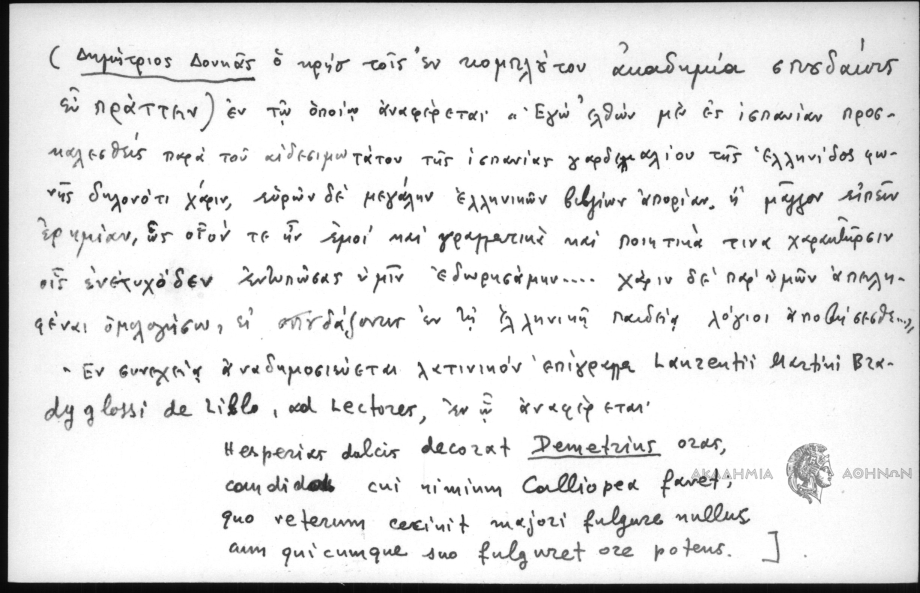 ( Δημήτριος Δουκᾶς ὁ κρὴσ τοῖς ἐν κομπλούτου ἀκαδημία σπυδαίοις
εὖ πράττειν) ἐν τῷ ὁποίῳ ἀναφέρεται· « Ἐγώ ἐλθών μὲν ἐς ἱσπανίαν προσ-
καλεσθείς παρά τοῦ αἰδεσιμωτάτου τῆς ἱσπανίας γαρδιναλίου τῆς ἑλληνίδος φω-
νῆς δηλονότι χάριν, εὑρών δέ μεγάλην ἑλληνικῶν βιβλίων ἀπορίαν, ἤ μᾶλλον εἰπεῖν
ἐρημίαν, ὡς οἷόν τε ἦν ἐμοί καί γραμματικά καί ποιητικά τινα χαρακτῆρσιν
οἷς ἐνέτυχόδεν ἐντυπώσας ὑμῖν ἐδωρησάμην.... χάριν δέ παρ' ὑμῶν ἀπειλη-
φέναι ὁμολογήσω, εἰ σπουδάζοντες ἐν τῇ ἑλληνικῇ παιδείᾳ λόγιοι ἀποβήσεσθε...»
- Ἐν συνεχείᾳ ἀναδημοσιεύεται λατινικόν ἐπίγραμμα Laurentii Martini Bra-
dyglossi de Liblo, ad Lectores, ἐν ᾧ ἀναφέρεται·
Hesperias dulcis decorat Demetrius oras,
candida cui nimium Calliopea favet,
quo veterum cecinit majori fulgure nullus
aum quicumque suo fulguret ore potens. ] .
ΑΚΑΔΗΜΙΑ ΑΘΗΝΩΝ